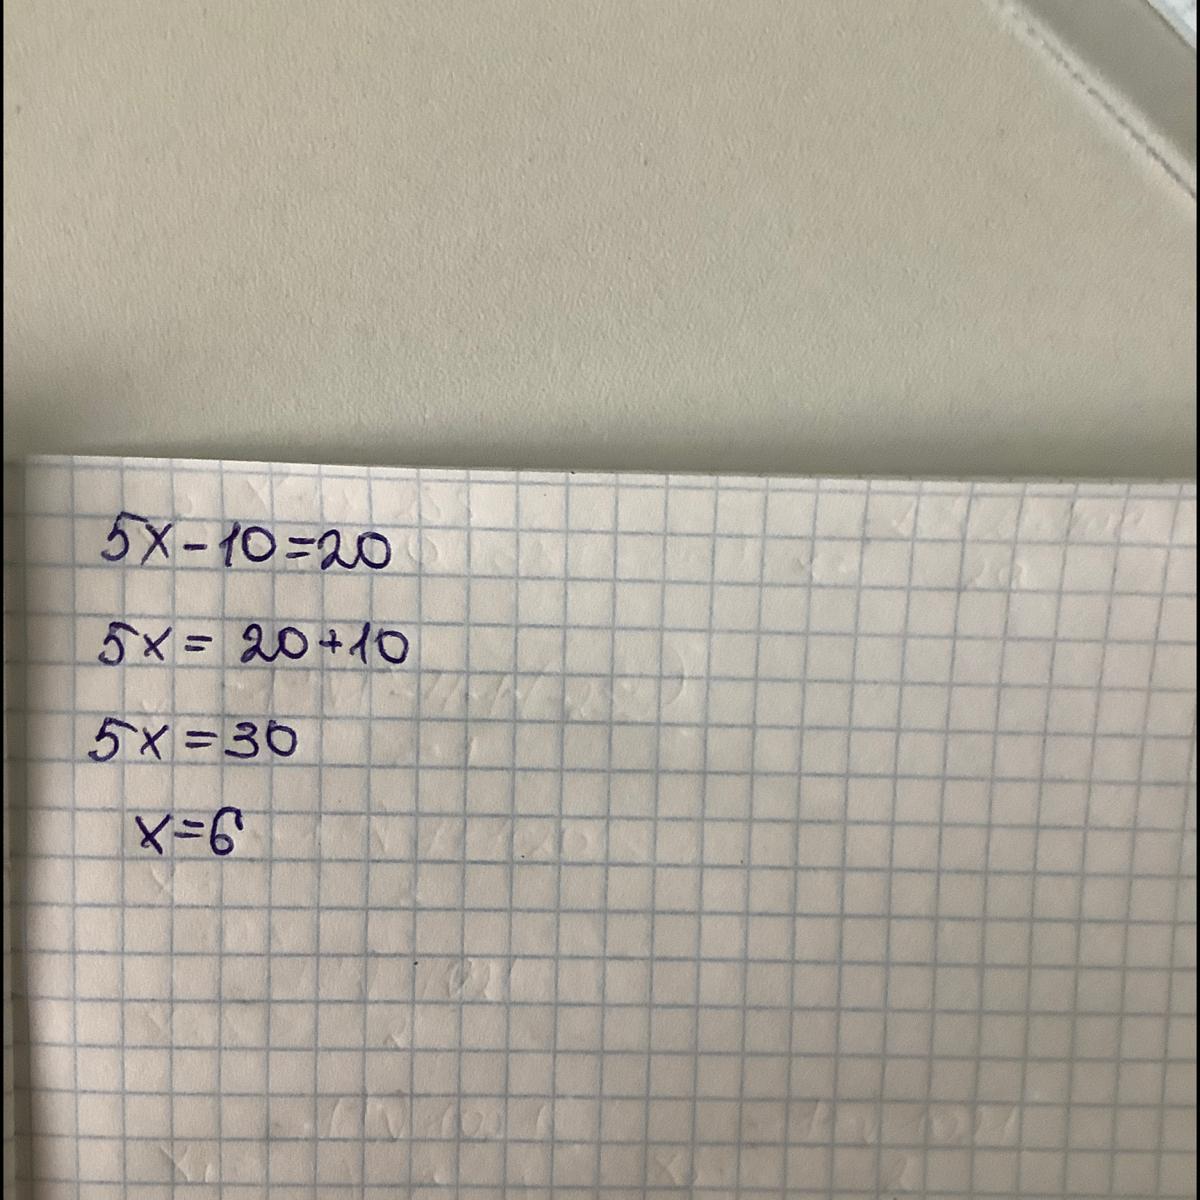 5x-10=20
5x= 20+10
5x=30
x=6